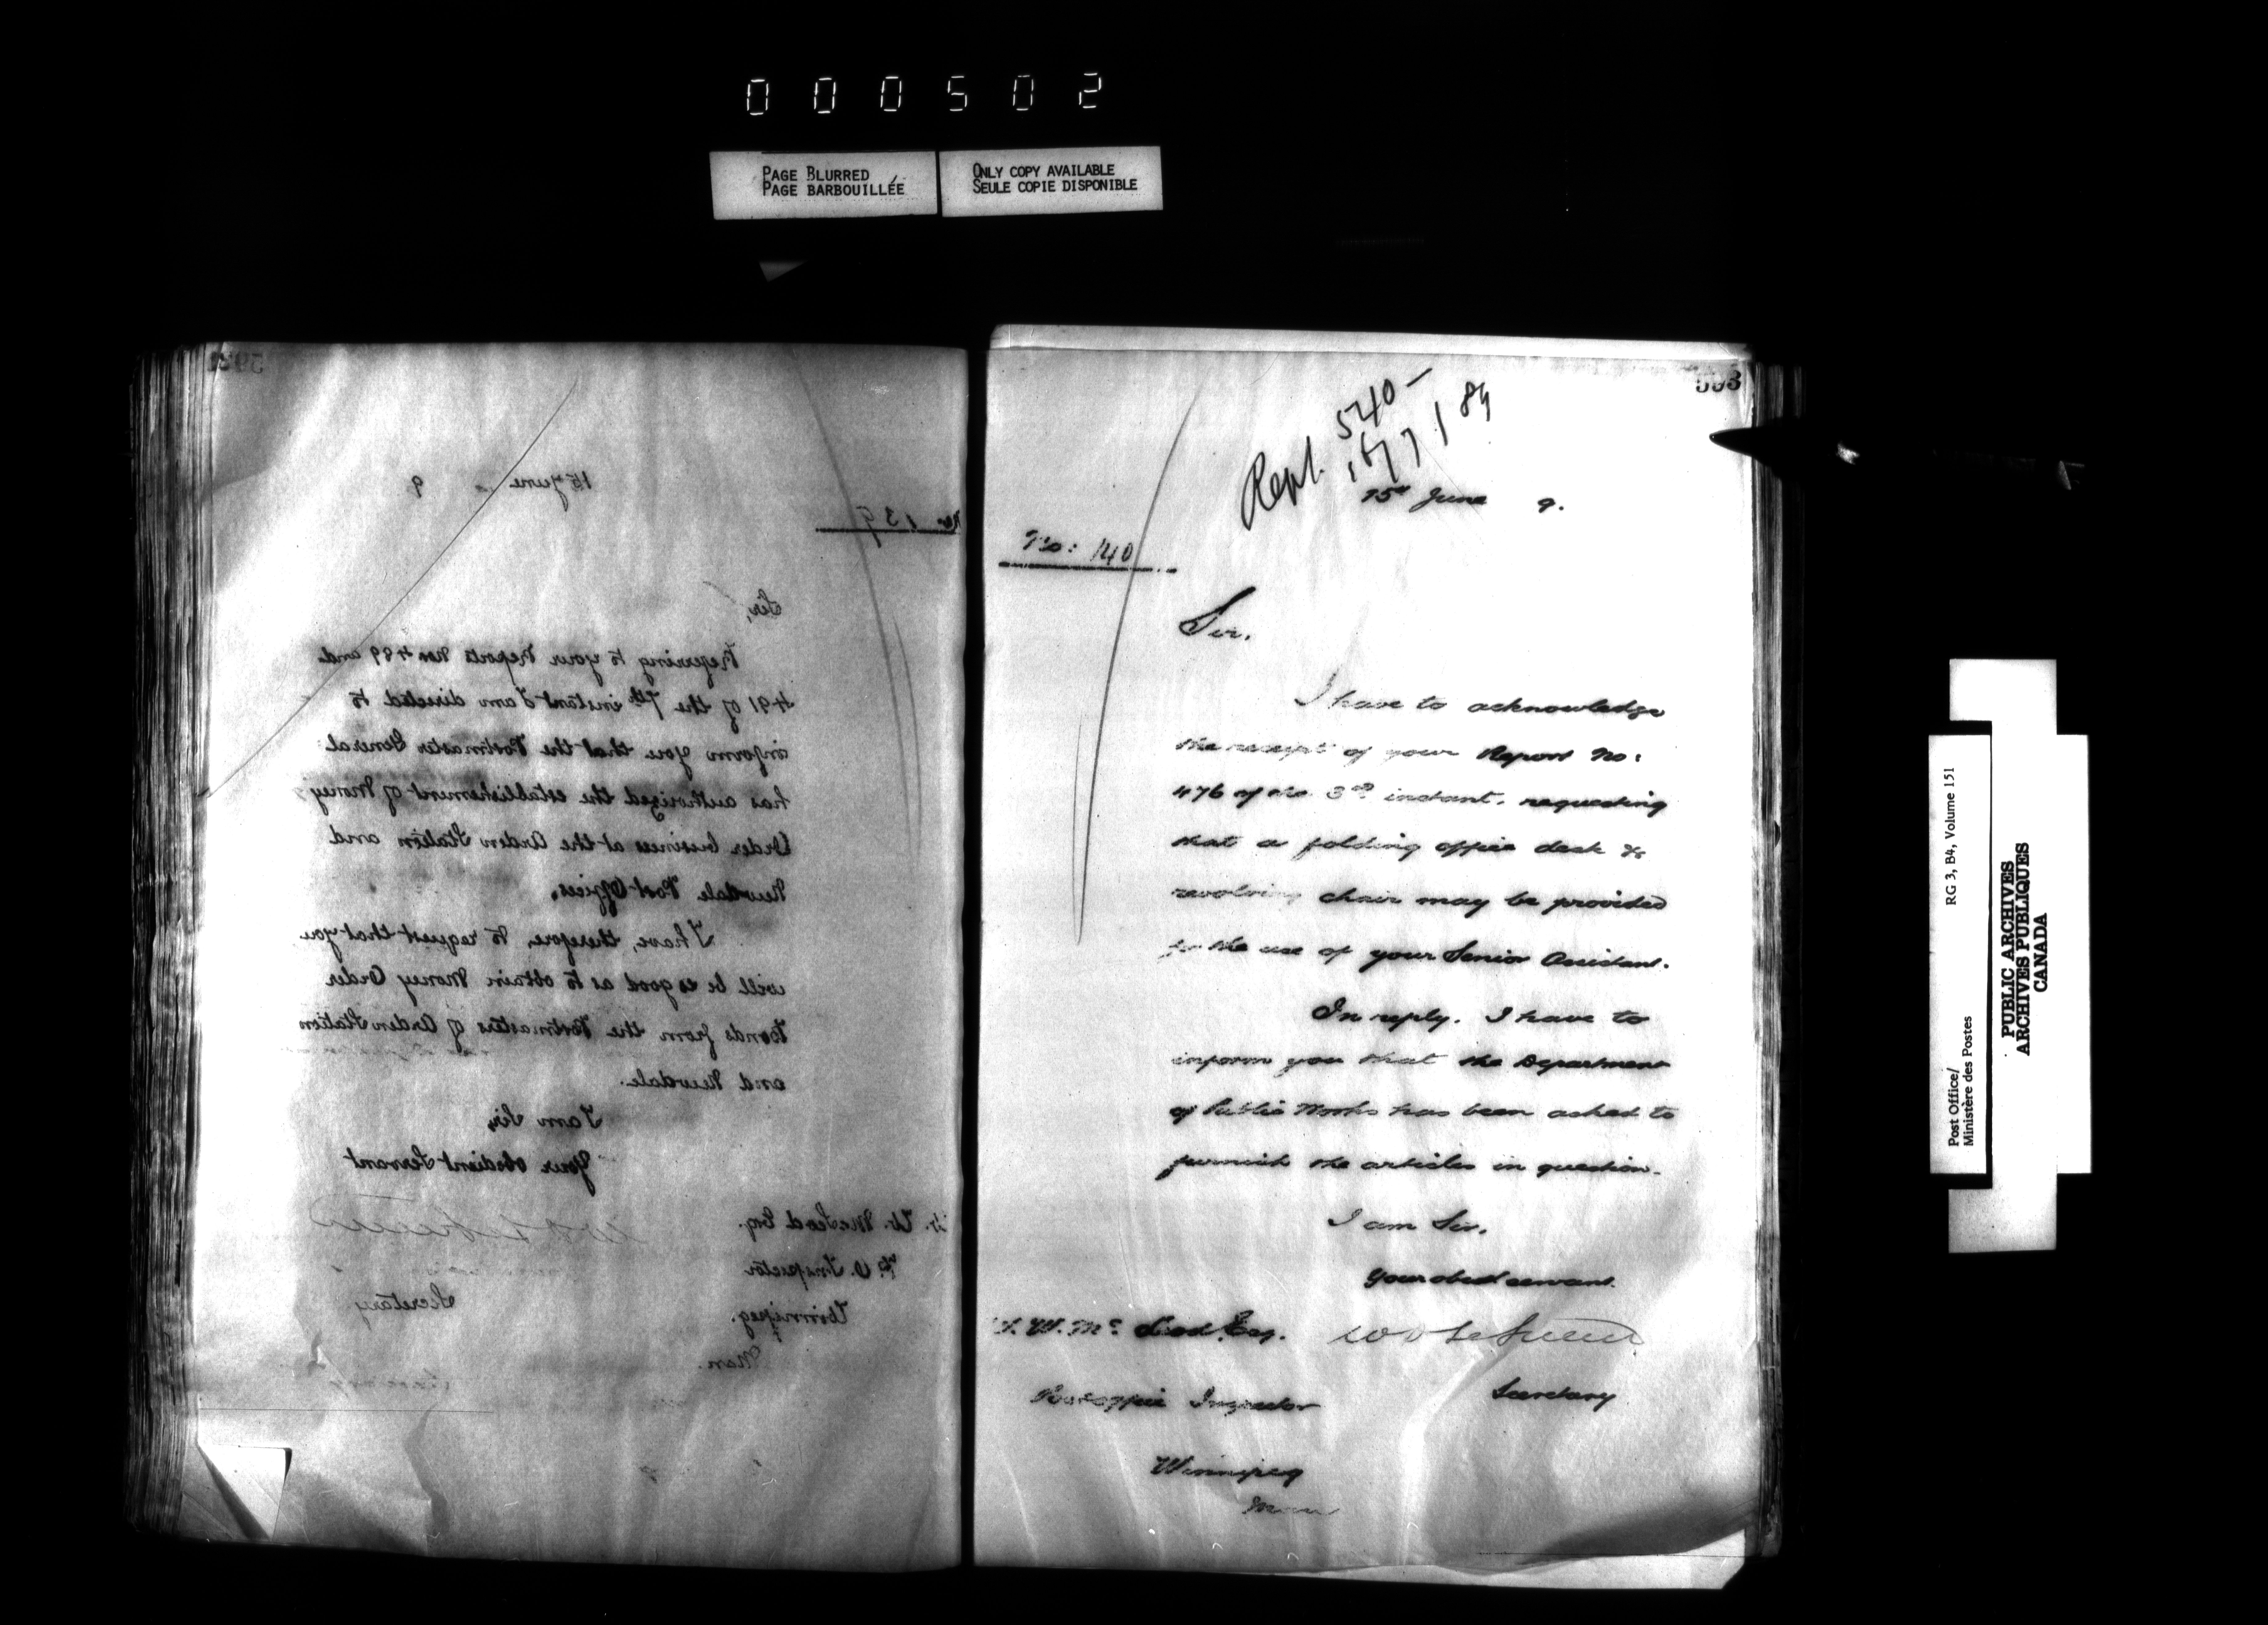 000502
PAGE BLURRED
PAGE BARBOUILLÉE
ONLY COPY AVAILABLE
SEULE COPIE DISPONIBLE
15 June 9
No. 139
Sir,
Referring to your Reports Nos 489 and
491 of the 7th instant I am directed to
inform you that the Postmaster General
has authorized the establishment of Money
Order business at the Arden Station and
Newdale Post Offices.
I have, therefore, to request that you
will be so good as to obtain Money Order
Bonds from the Postmasters of Arden Station
and Newdale.
I am Sir,
Your obedient Servant
W. W. McLeod Esq.
P.O. Inspector
Secretary
Winnipeg.
Man.
593
Rept. 540 -
15th June 9.
No: 140
Sir.
I have to acknowledge
the receipt of your Report No:
476 of the 3rd instant, requesting
that a folding office desk &
revolving chair may be provided
for the use of your Senior Assistant.
In reply. I have to
inform you that the Department
of Public Works has been asked to
furnish the articles in question.
I am Sir.
Your obedt servant.
W. Mc Leod Esq.
Secretary
Post office Inspector
Winnipeg
Man
Post Office/
Ministère des Postes
RG 3, B4, Volume 151
PUBLIC ARCHIVES
ARCHIVES PUBLIQUES
CANADA